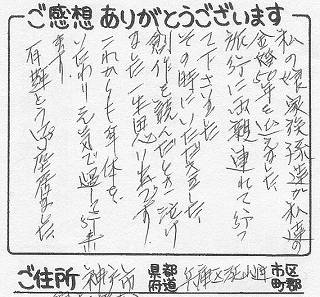 ご感想 ありがとうございます
私の娘家族孫達が私達の
金婚50年を迎えました
旅行にお連れて行っ
て下さいました
その時にいただきました
創作を読んだとき泣け
ました一生思い出です。
これからも身体を
いたわり元気で過して行き
ます。
有難とうございました
ご住所 神戸市 都道府県 兵庫区 市区町郡